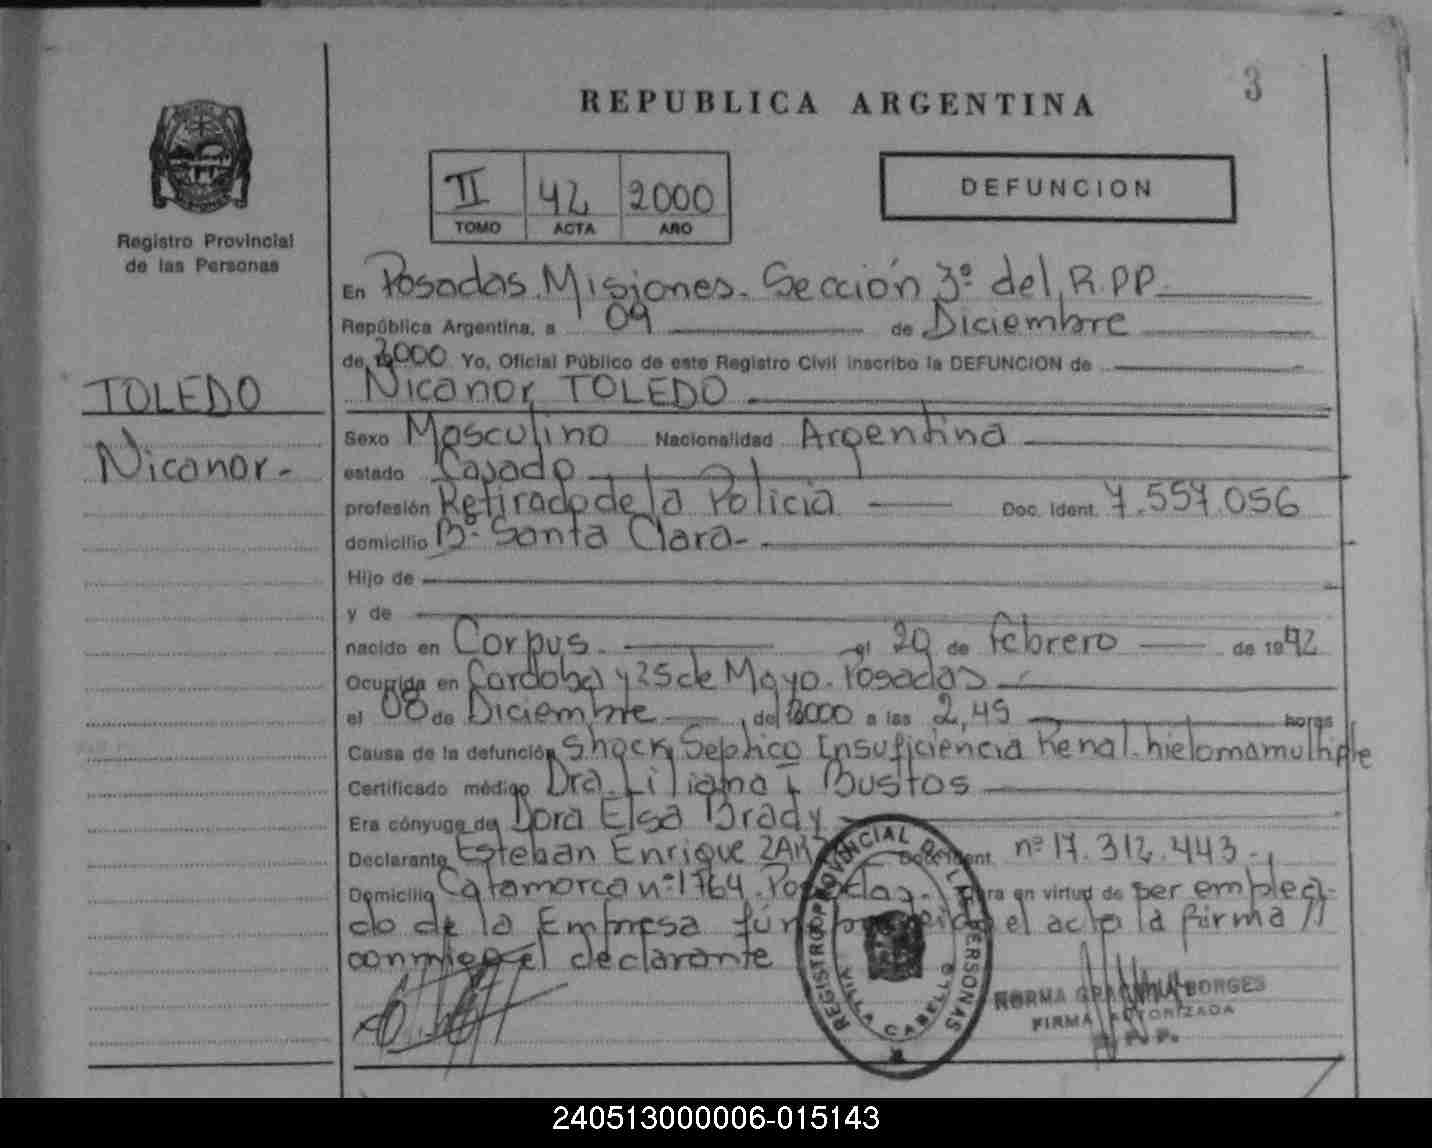 3
REPUBLICA ARGENTINA
II 42 2000
TOMO ACTA AÑO
DEFUNCION
Registro Provincial
de las Personas
En Posadas. Misiones. Sección 3º del R.P.P.
República Argentina, a 09 de Diciembre
de 2000 Yo, Oficial Público de este Registro Civil inscribo la DEFUNCION de
TOLEDO
Nicanor TOLEDO
Sexo Masculino Nacionalidad Argentina
Nicanor-
estado Casado
profesión Retirado de la Policia Doc. Ident. 7.557.056
domicilio Bº Santa Clara-
Hijo de
y de
nacido en Corpus. el 20 de febrero de 1942
Ocurrida en Cordoba y 25 de Mayo. Posadas
el 08 de Diciembre de 2000 a las 2,45 horas
Causa de la defunción Shock Septico Insuficiencia Renal. hielomamultiple
Certificado médico Dra. Liliana I Bustos
Era cónyuge de Dora Elsa Brady
Declarante Esteban Enrique Doc. Ident. nº 17.312.443-
Domicilio Catamarca nº 1764. Posadas. en virtud de ser emplea-
do de la Empresa el acta la firma
conmigo el declarante
REGISTRO PROVINCIAL DE LAS PERSONAS
VILLA CABELLO
NORMA GRACIELA BORGES
FIRMA AUTORIZADA
R. P. P.
240513000006-015143